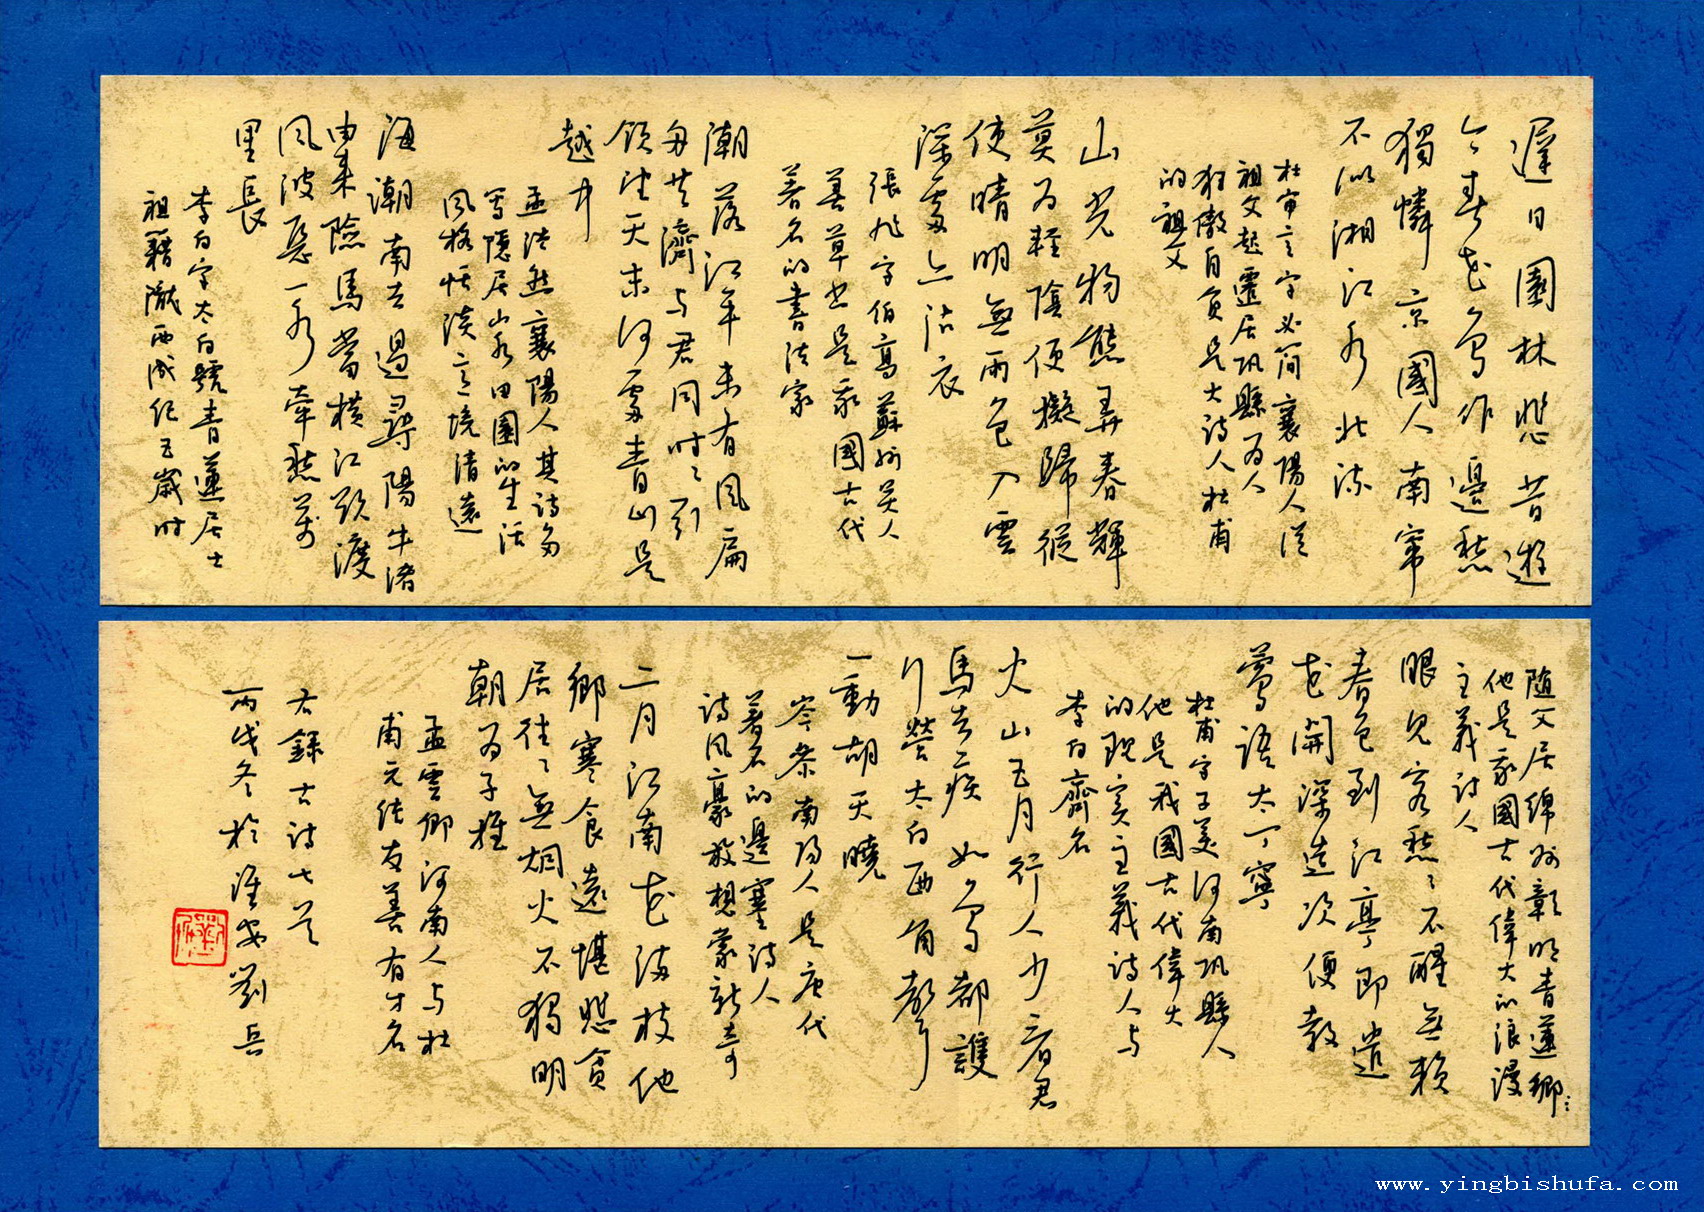 遲日園林悲昔遊
今春花鳥作邊愁
獨憐京國人南竄
不似湘江水北流
杜审言字必简襄陽人從
祖父起遷居巩縣為人
狂傲自負是大诗人杜甫
的祖父
山光物態弄春輝
莫为輕陰便擬歸縱
使晴明無雨色入雲
深處亦沾衣
張旭字伯高蘇州吴人
善草书是我國古代
著名的書法家
潮落江平未有风扁
舟共濟与君同时时引
领望天末何處青山是
越中
孟浩然襄陽人其诗多
写隱居山水田園的生活
风格恬淡意境清遠
海潮南去過尋陽牛渚
由来險馬當横江欲渡
风波恶一水牵愁萬
里長
李白字太白號青蓮居士
祖籍隴西成纪五歲时
随父居绵州彰明青蓮鄉
他是我國古代偉大的浪漫
主義诗人
眼见客愁愁不醒无赖
春色到江亭即遣
花開深造次便教
鶯語太丁寧
杜甫字子美河南巩縣人
他是我國古代偉大
的现实主義诗人与
李白齊名
火山五月行人少看君
馬去疾如鸟都護
行營太白西角聲
一動胡天曉
岑参南阳人是唐代
著名的邊塞诗人
诗风豪放想象新奇
二月江南花滿枝他
鄉寒食遠堪悲貧
居往往無烟火不獨明
朝为子推
孟雲卿河南人与杜
甫元结友善有才名
右録古诗七首
丙戌冬於淮安劉兵
www.yingbishufa.com